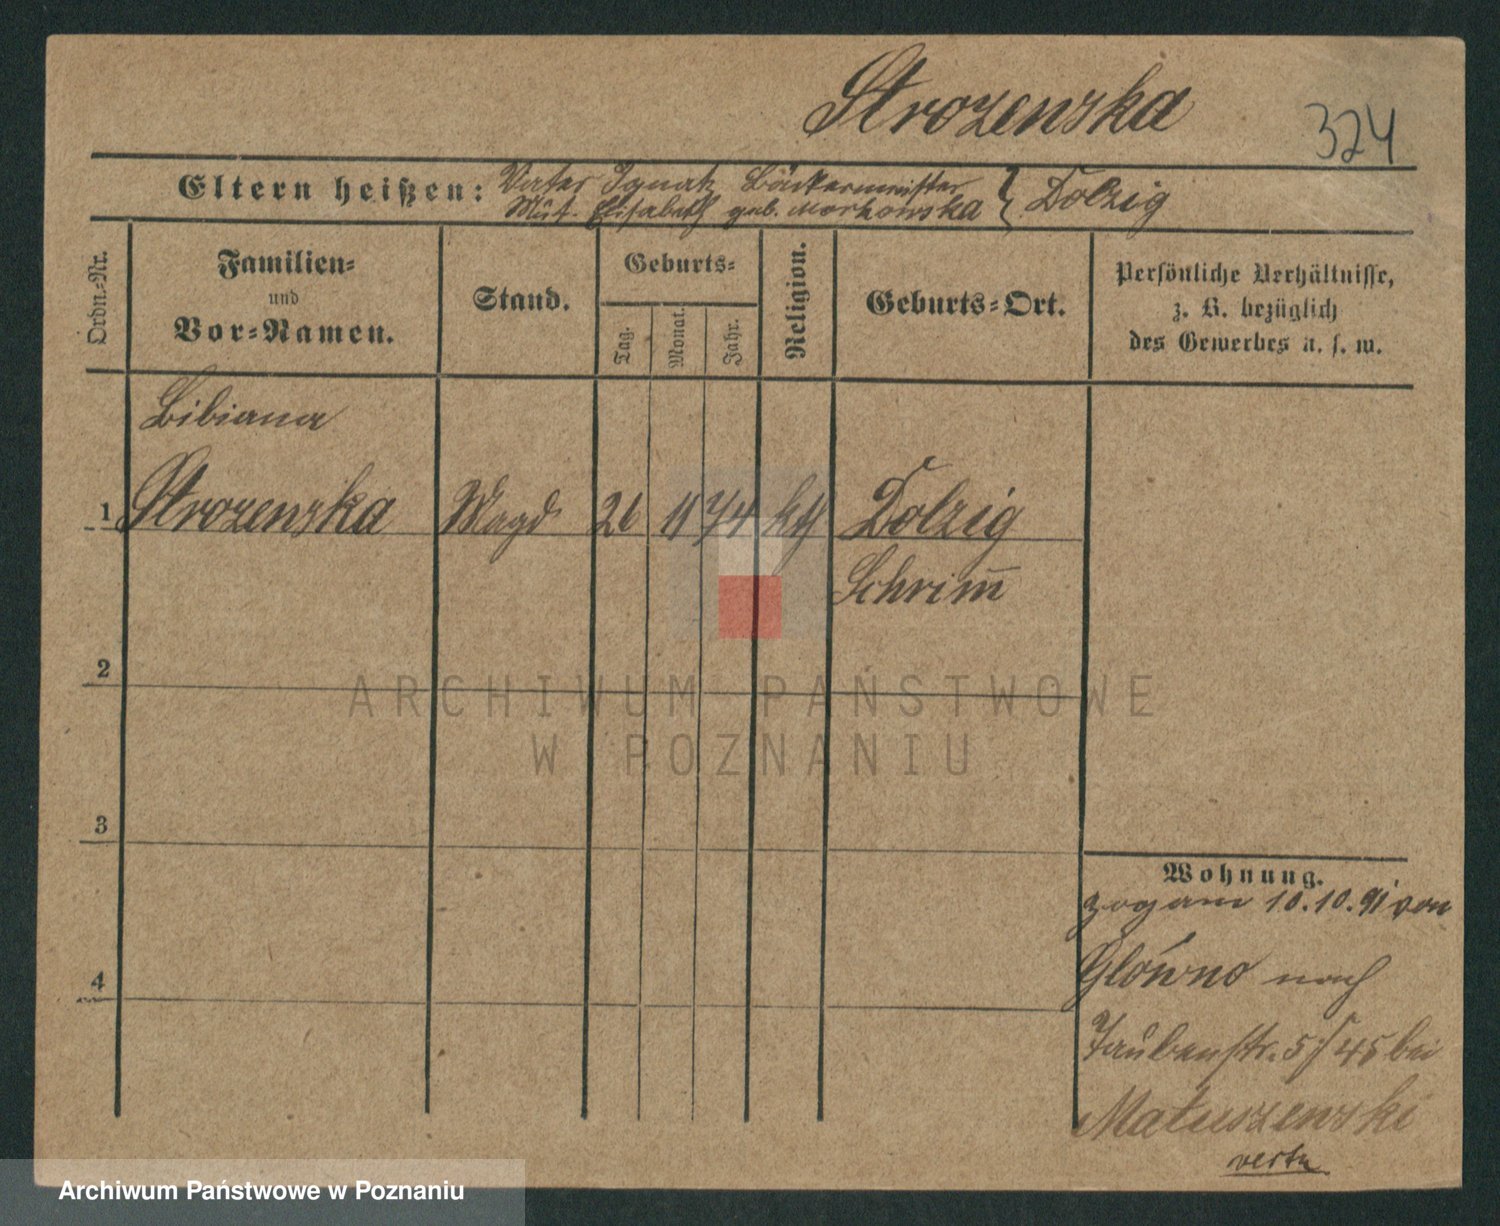 Strozenska
324
Eltern heißen: Vater Ignatz Bäckermeister
Mut. Elisabeth geb. Morkowska } Dolzig
Ordn.-Nr.
Familien-
und
Vor-Namen.
Stand.
Geburts-
Tag.
Monat.
Jahr.
Religion.
Geburts-Ort.
Persönliche Verhältnisse,
z. B. bezüglich
des Gewerbes u. s. w.
Bibiana
1 Strozenska Magd 26 11 74 kth Dolzig
Schrim̄
2
3
4
Wohnung.
zog am 10.10.91 von
Glówno nach
Taubenstr. 5 / 45 bei
Matuszenski
verte
ARCHIWUM PAŃSTWOWE
W POZNANIU
Archiwum Państwowe w Poznaniu